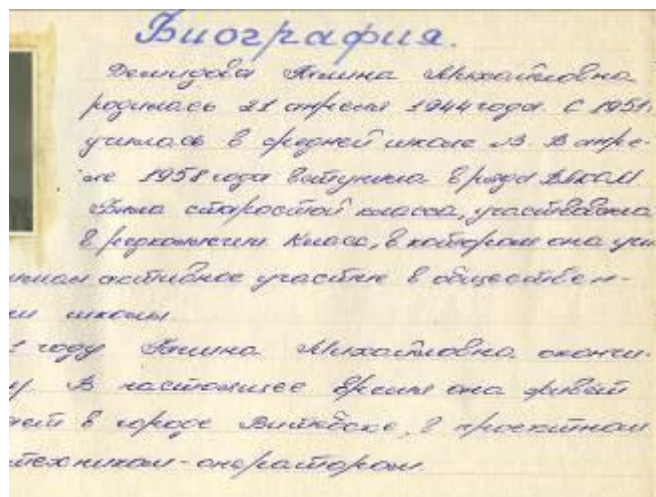 Биография.
Демидова Янина Михайловна
родилась 21 апреля 1944 года. С 1951
училась в средней школе №3. В апре-
ле 1958 года вступила в ряды ВЛКСМ
Была старостой класса, участвовала
в редколлегии класса, в котором она учи
активное участие в обществен-
школы.
году Янина Михайловна окончи-
у. В настоящее время она живёт
ает в городе Витебске, в проектном
техником-оператором.